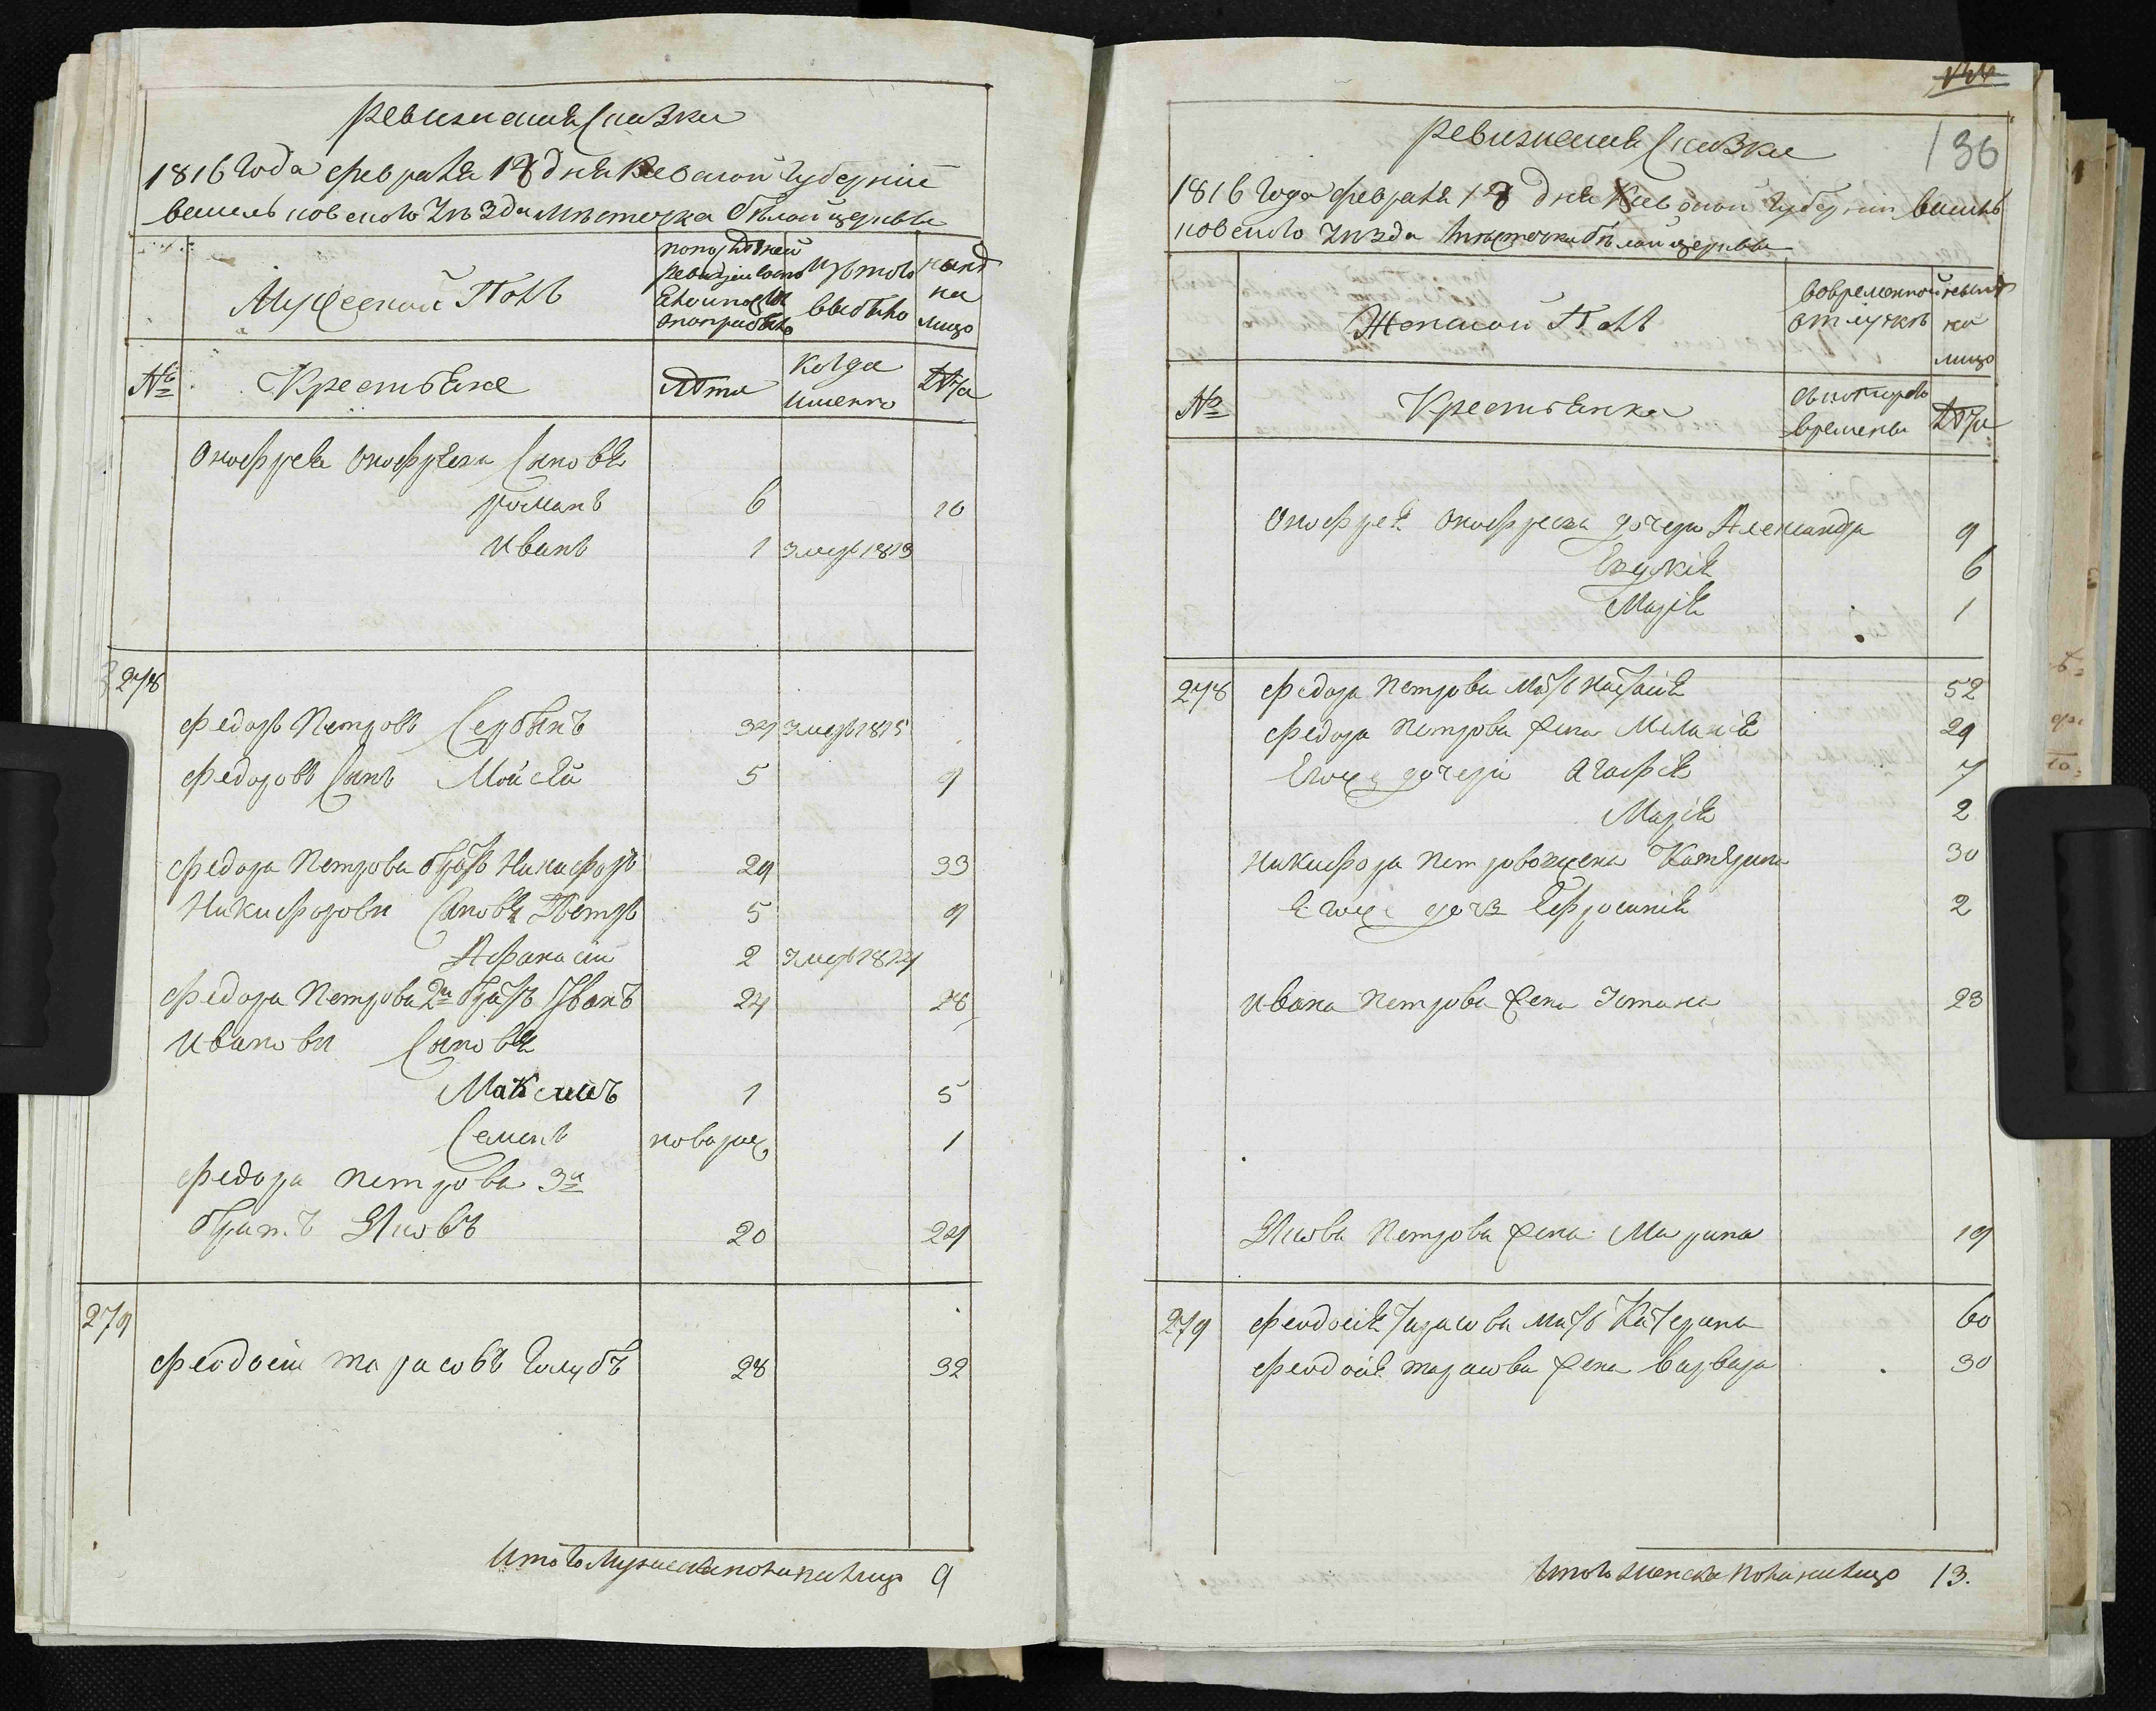 Ревизская Сказка
1816 года февраля 18 дня Киевской губернии
васильковского уѣзда мѣстечка бѣлой церкви
Мужеской Полъ
по последней
ревизии состо
яло и после
оной прибыло
Изтого
выбыло
нынѣ
на
лицо
№
Крестьяне
Лѣта
Когда
именно
Лѣта
Онофрея Онофреева Сыновья
романъ 6 10
иванъ 1 умеръ 1813
278
Федоръ Петровъ Сербинъ 34 умеръ 1815
Федоровъ Сынъ Мойсей 5 9
Федора Петрова братъ Никифоръ 29 33
Никифоровы Сыновья Петръ 5 9
Афанасий 2 умеръ 1814
Федора Петрова 2й братъ Иванъ 24 28
Ивановы Сыновья
Максимъ 1 5
Семенъ новорож 1
Федора Петрова 3й
братъ Яковъ 20 24
279
Феодосий тарасовъ голубъ 28 32
Итого Мужеска пола налицо 9
136
Ревизская Сказка
1816 года февраля 18 дня Киевской губернии василь
ковского уѣзда мѣстечка бѣлой церкви
Женской Полъ
вовременной
отлучкѣ
нынѣ
на
лицо
№
Крестьянка
съ которого
времены
Лѣта
Онофрея Онофреева дочери Александра 9
Евдокия 6
Мария 1
278 Федора Петрова мать Настасия 52
Федора Петрова жена Мелания 29
Егоже дочери Агафия 7
Мария 2
Никифора Петрова жена Катерина 30
Егоже дочь Ефросиния 2
Ивана Петрова жена Татиана 23
Якова Петрова жена Марина 19
279 Феодосия Тарасова мать Катерина 60
Феодосия тарасова жена варвара 30
Итого женска пола налицо 13.